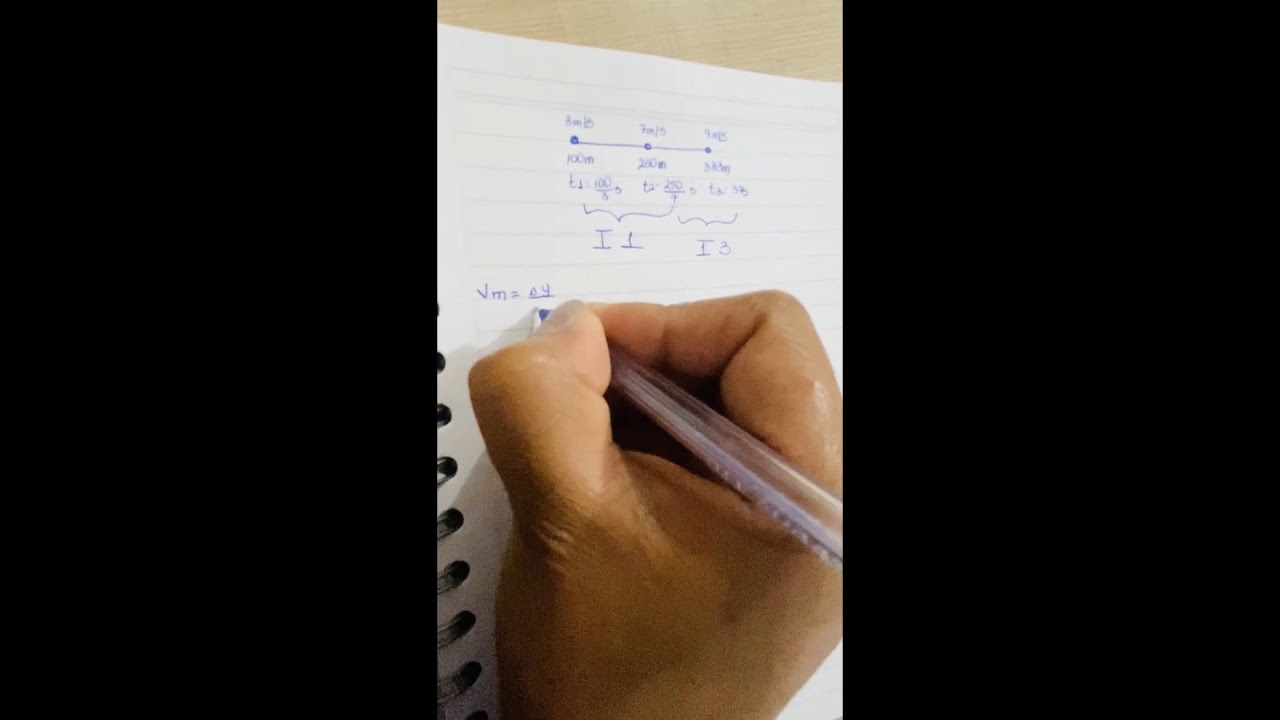 3m/s 7m/s 9m/s
100m 250m 333m
t1=100/3 s t2=250/7 s t3=37s
I 1 I 3
Vm = ΔY